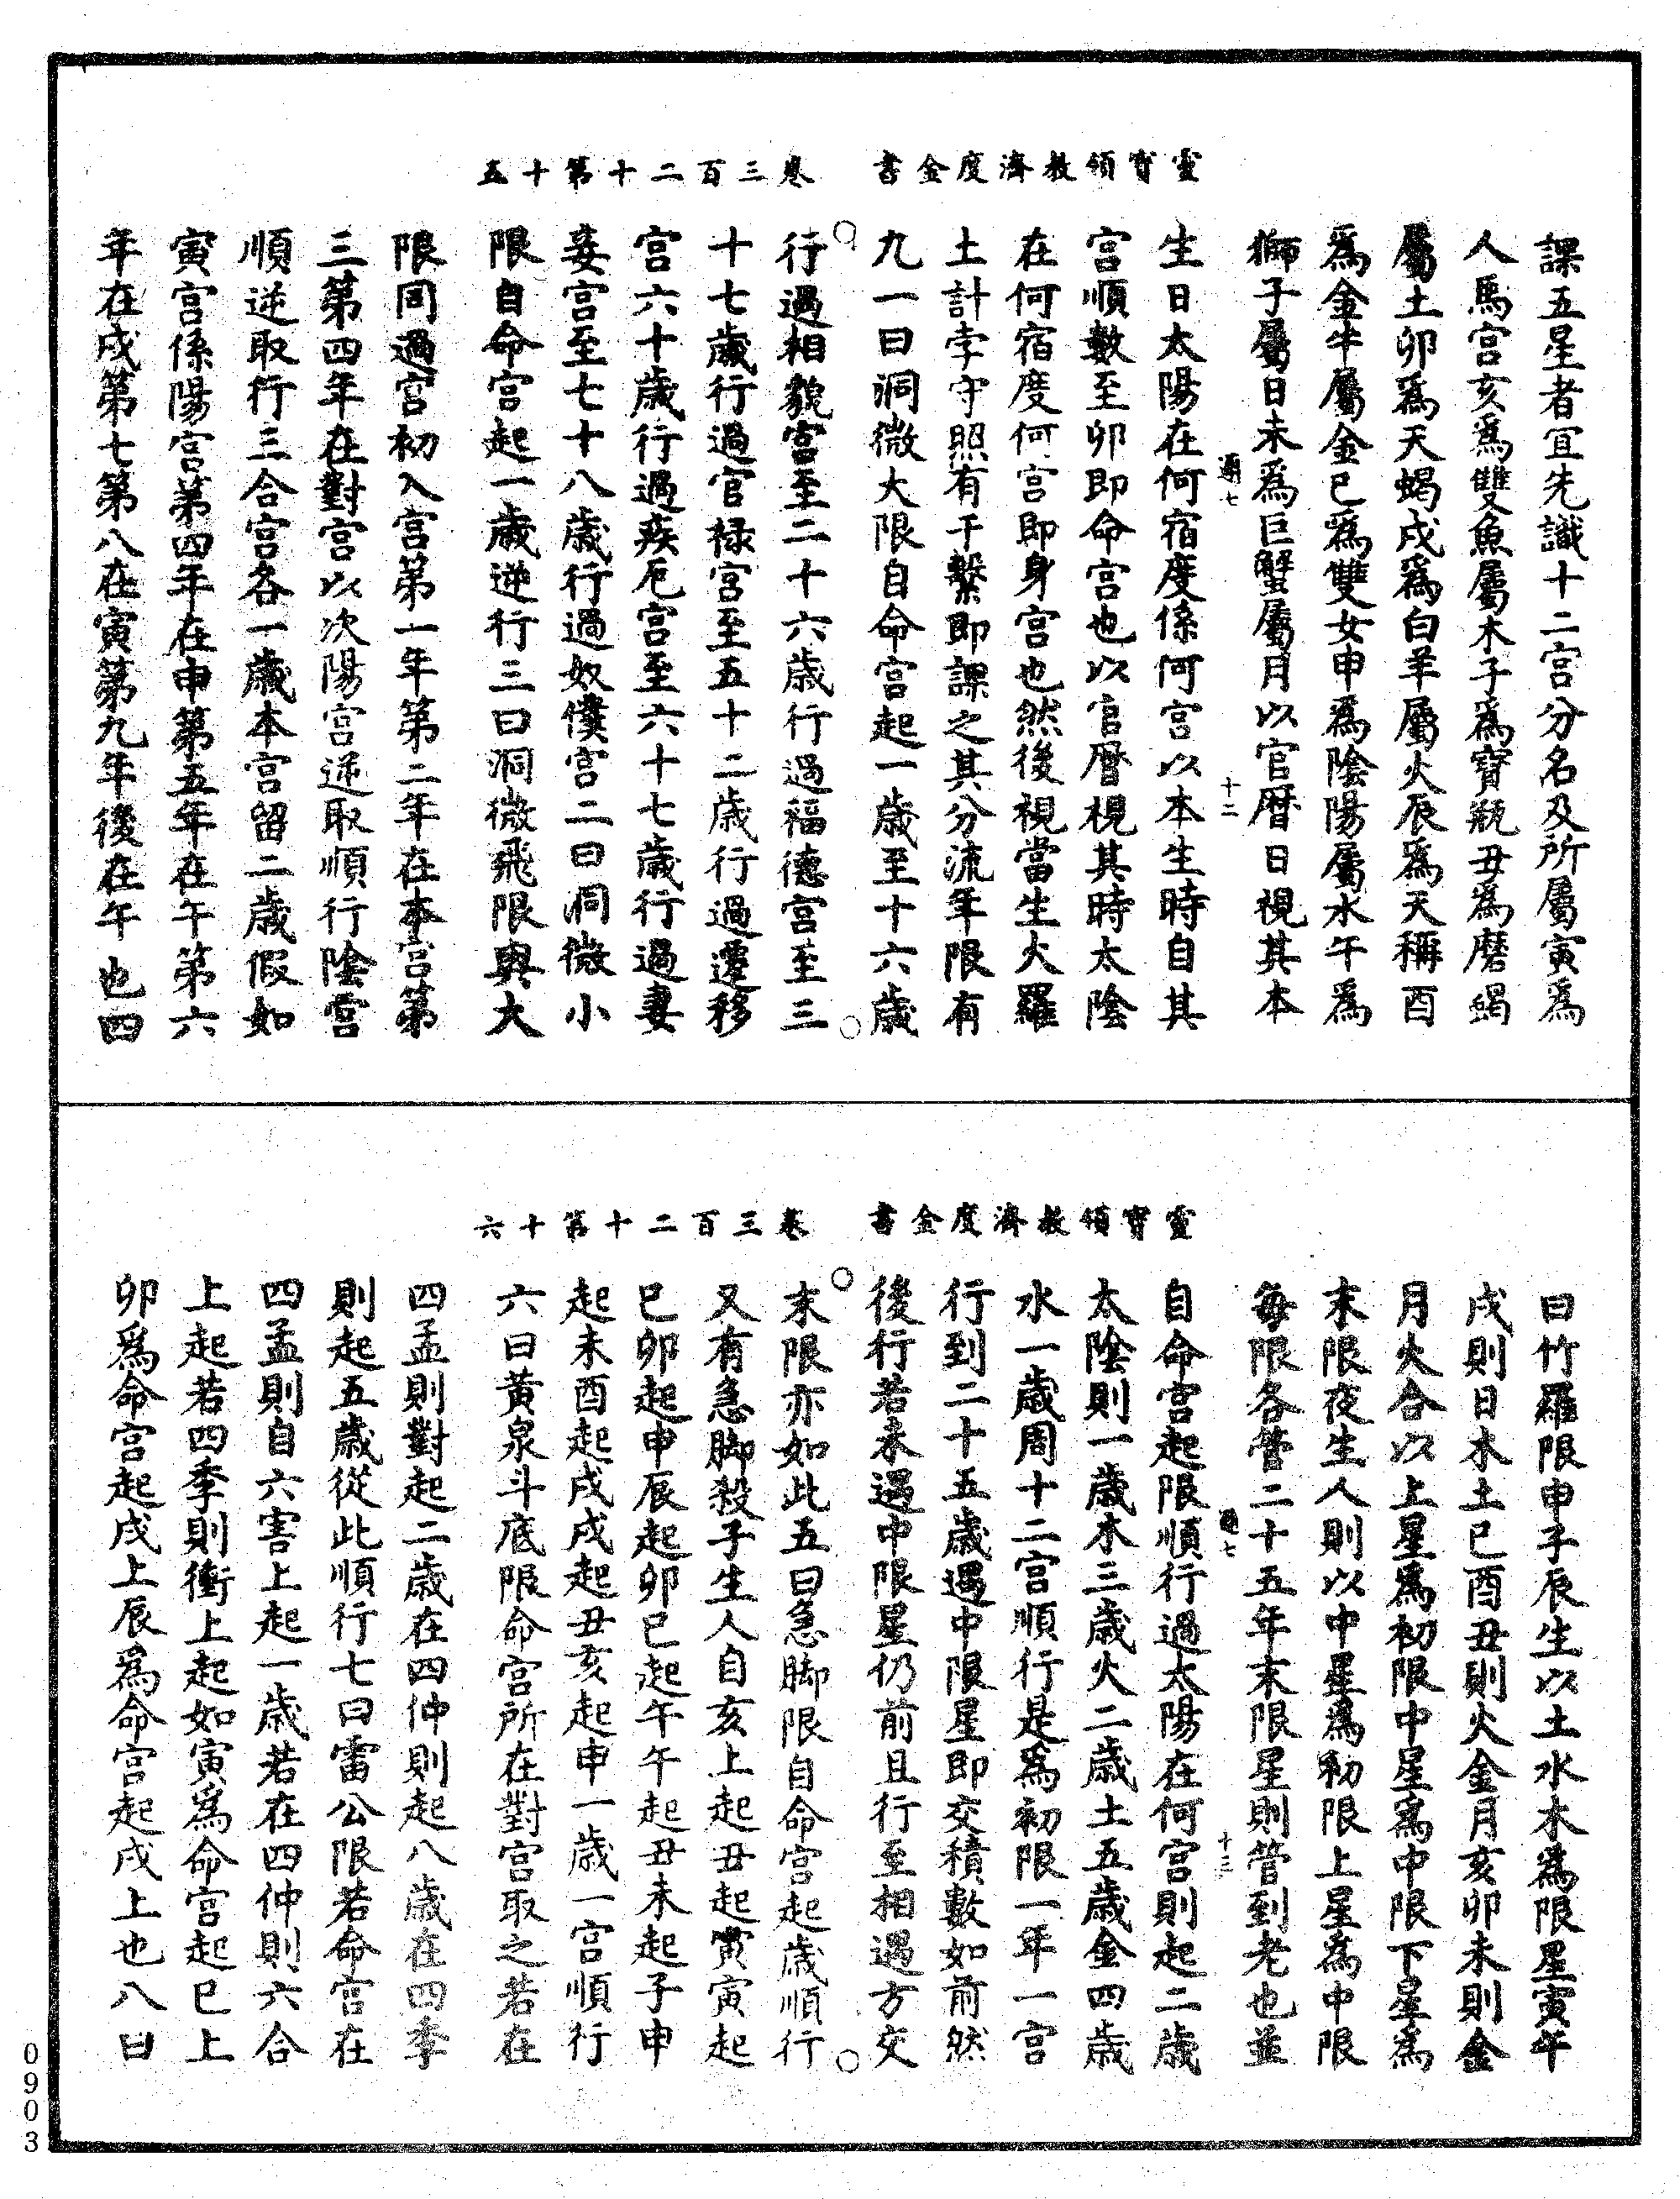 靈寶領教濟度金書　卷三百二十第十五
課五星者宜先識十二宮分名及所屬寅爲
人馬宮亥爲雙魚屬木子爲寶瓶丑爲磨蝎
屬土卯爲天蝎戌爲白羊屬火辰爲天秤酉
爲金牛屬金巳爲雙女申爲陰陽屬水午爲
獅子屬日未爲巨蟹屬月以官曆日視其本
通七　十二
生日太陽在何宿度係何宮以本生時自其
宮順數至卯即命宮也以官曆視其時太陰
在何宿度何宮即身宮也然後視當生火羅
土計孛守照有干繫即課之其分流年限有
九一曰洞微大限自命宮起一歲至十六歲
行過相貌宮至二十六歲行過福德宮至三
十七歲行過官祿宮至五十二歲行過遷移
宮六十歲行過疾厄宮至六十七歲行過妻
妾宮至七十八歲行過奴僕宮二曰洞微小
限自命宮起一歲逆行三曰洞微飛限與大
限同過宮初入宮第一年第二年在本宮第
三第四年在對宮以次陽宮逆取順行陰宮
順逆取行三合宮各一歲本宮留二歲假如
寅宮係陽宮第四年在申第五年在午第六
年在戌第七第八在寅第九年後在午也四
靈寶領教濟度金書　卷三百二十第十六
曰竹羅限申子辰生以土水木爲限星寅午
戌則日木土巳酉丑則火金月亥卯未則金
月火合以上星爲初限中星爲中限下星爲
末限夜生人則以中星爲初限上星爲中限
每限各管二十五年末限星則管到老也並
通七　十三
自命宮起限順行過太陽在何宮則起二歲
太陰則一歲木三歲火二歲土五歲金四歲
水一歲周十二宮順行是爲初限一年一宮
行到二十五歲遇中限星即交積數如前然
後行若未遇中限星仍前且行至相遇方交
末限亦如此五曰急脚限自命宮起歲順行
又有急脚殺子生人自亥上起丑起寅寅起
巳卯起申辰起卯巳起午午起丑未起子申
起未酉起戌戌起丑亥起申一歲一宮順行
六曰黃泉斗底限命宮所在對宮取之若在
四孟則對起二歲在四仲則起八歲在四季
則起五歲從此順行七曰雷公限若命宮在
四孟則自六害上起一歲若在四仲則六合
上起若四季則衝上起如寅爲命宮起巳上
卯爲命宮起戌上辰爲命宮起戌上也八曰
0903